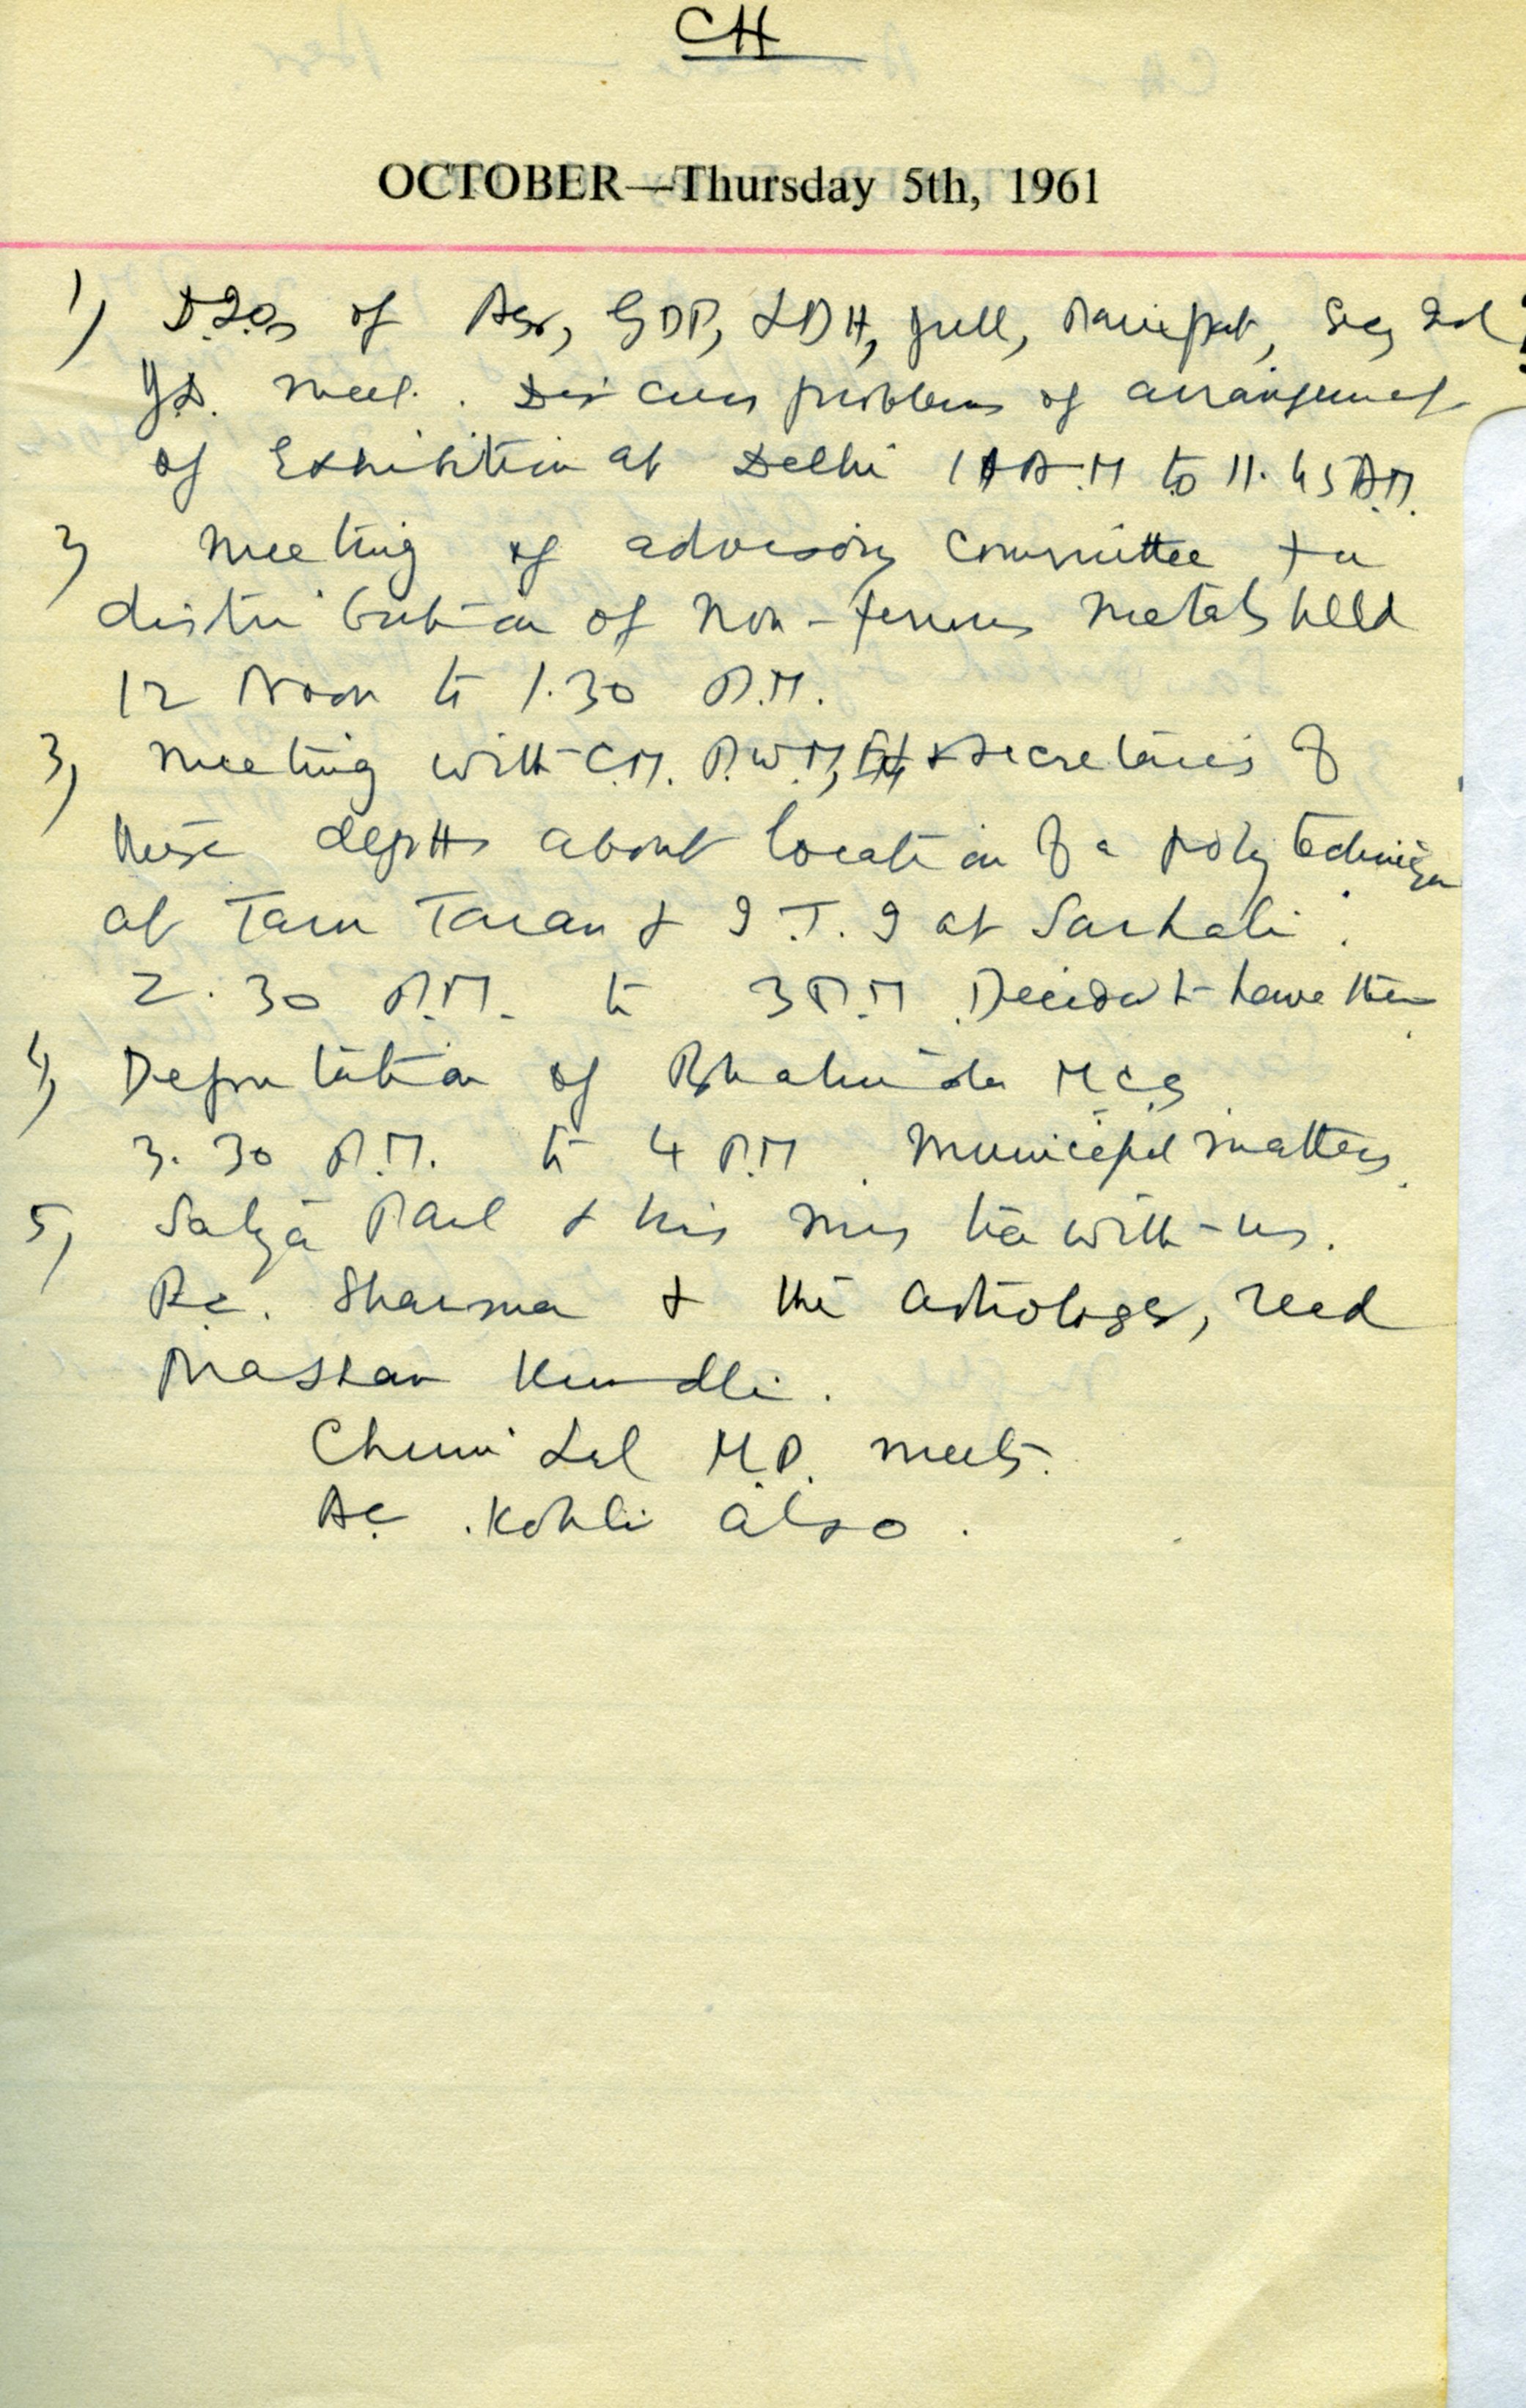 CH
OCTOBER—Thursday 5th, 1961
1) D.I.Os of Asr, GDP, LDH, Jull, Panipat, Secy Ind
J.D. meet. Discuss problems of arrangement
of Exhibition at Delhi 11 A.M to 11.45 A.M.
2) meeting of advisory Committee for
distribution of Non-ferrous metals held
12 Noon to 1.30 P.M.
3) meeting with C.M. P.W.M, & secretaries of
these deptts about location of a polytechnic
at Tarn Taran & I.T.I at Sarhali.
2.30 P.M. to 3 P.M. Decided to have them
4) Deputation of Bhatinda M.C.s
3.30 P.M. to 4 P.M. Municipal matters.
5) Satya Paul & his Mrs tea with us.
R.C. Sharma & the astrologer, read
Mastan Kundli.
Chuni Lal M.P. meets.
A.C. Kohli also.